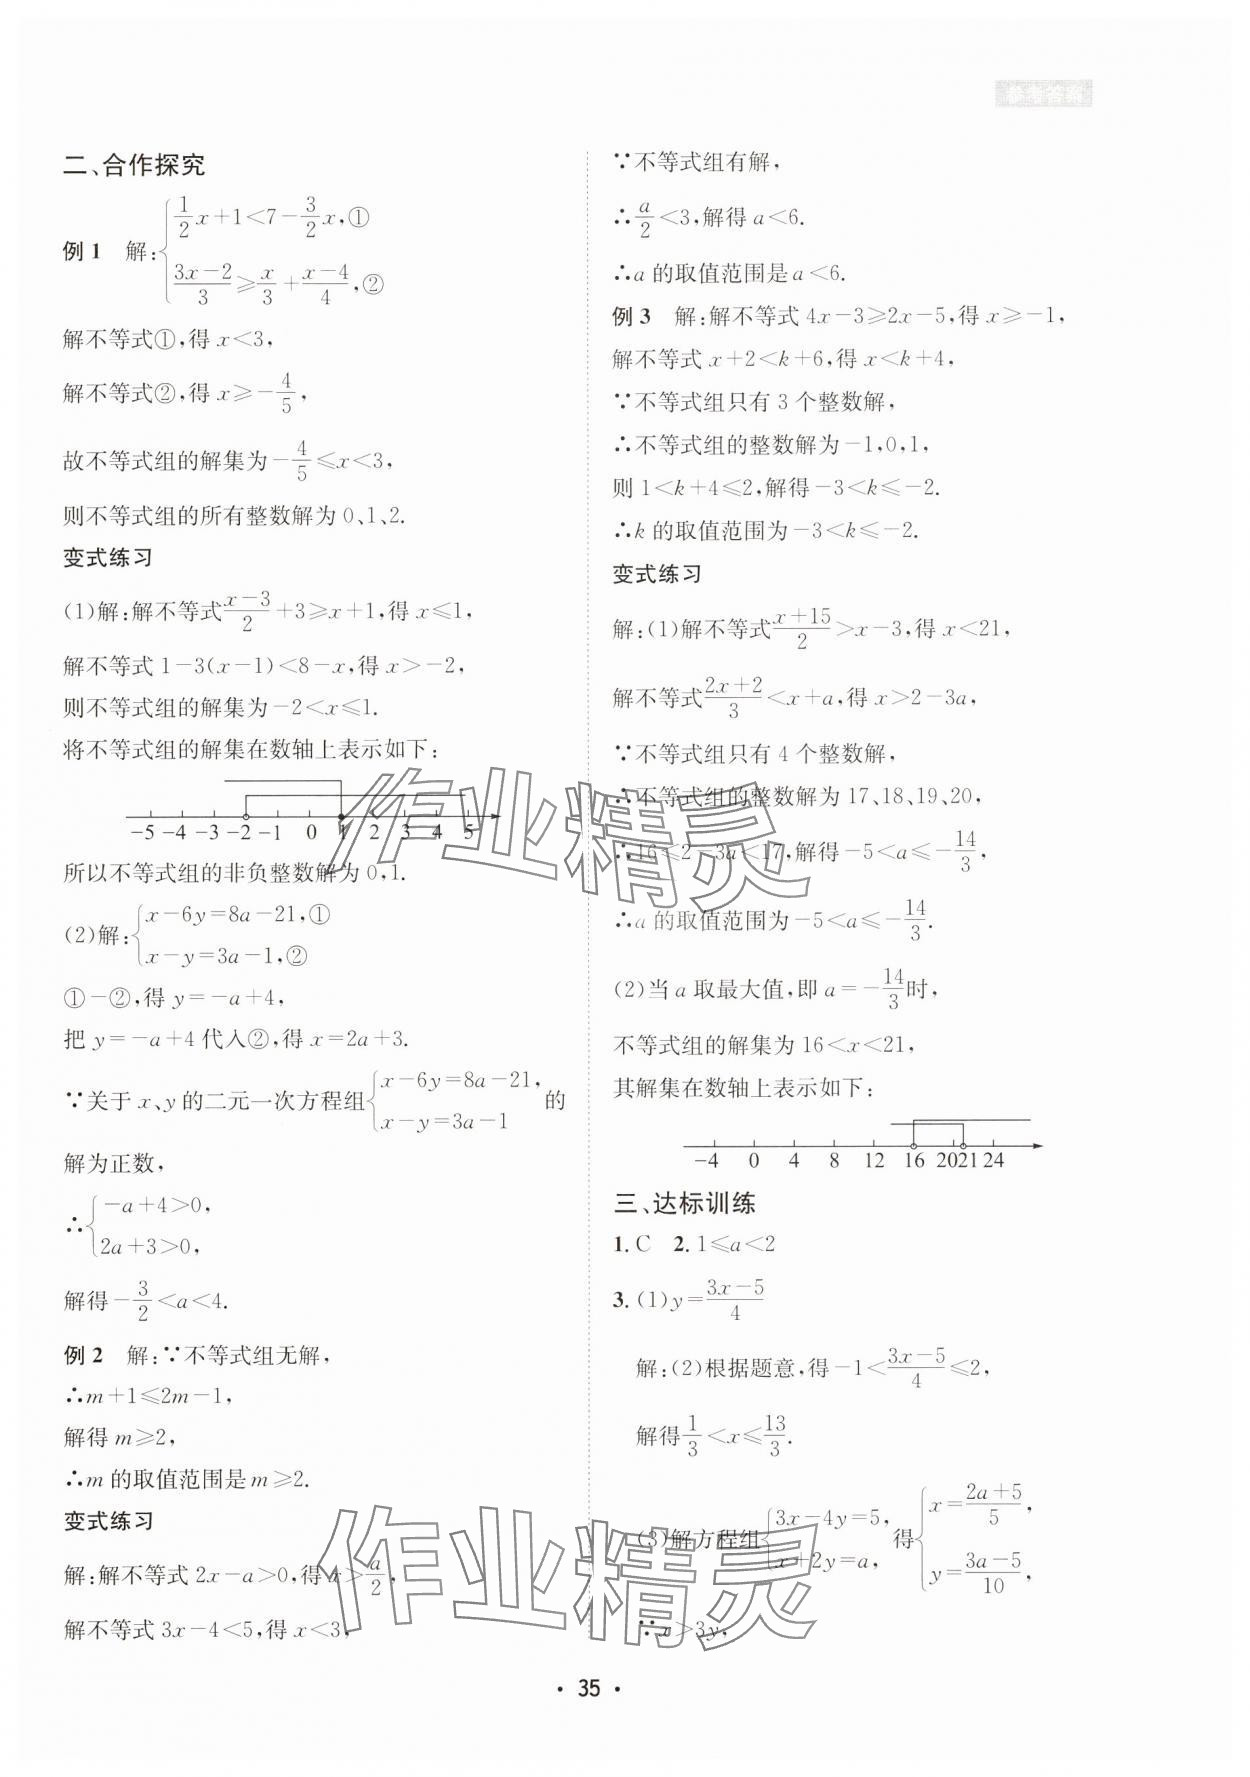 参考答案
二、合作探究
例1 解:{1/2x+1<7-3/2x,①
(3x-2)/3≥x/3+(x-4)/4,②
解不等式①,得 x<3,
解不等式②,得 x≥-4/5,
故不等式组的解集为-4/5≤x<3,
则不等式组的所有整数解为 0、1、2.
变式练习
(1)解:解不等式(x-3)/2+3≥x+1,得 x≤1,
解不等式 1-3(x-1)<8-x,得 x>-2,
则不等式组的解集为-2<x≤1.
将不等式组的解集在数轴上表示如下:
-5 -4 -3 -2 -1 0 1 2 3 4 5
所以不等式组的非负整数解为 0,1.
(2)解:{x-6y=8a-21,①
x-y=3a-1,②
①-②,得 y=-a+4,
把 y=-a+4 代入②,得 x=2a+3.
∵关于 x、y 的二元一次方程组{x-6y=8a-21,
x-y=3a-1 的
解为正数,
∴{-a+4>0,
2a+3>0,
解得-3/2<a<4.
例2 解:∵不等式组无解,
∴m+1≤2m-1,
解得 m≥2,
∴m 的取值范围是 m≥2.
变式练习
解:解不等式 2x-a>0,得 x>a/2,
解不等式 3x-4<5,得 x<3,
∵不等式组有解,
∴a/2<3,解得 a<6.
∴a 的取值范围是 a<6.
例3 解:解不等式 4x-3≥2x-5,得 x≥-1,
解不等式 x+2<k+6,得 x<k+4,
∵不等式组只有 3 个整数解,
∴不等式组的整数解为-1,0,1,
则 1<k+4≤2,解得-3<k≤-2.
∴k 的取值范围为-3<k≤-2.
变式练习
解:(1)解不等式(x+15)/2>x-3,得 x<21,
解不等式(2x+2)/3<x+a,得 x>2-3a,
∵不等式组只有 4 个整数解,
∴不等式组的整数解为 17、18、19、20,
∴16≤2-3a<17,解得-5<a≤-14/3,
∴a 的取值范围为-5<a≤-14/3.
(2)当 a 取最大值,即 a=-14/3时,
不等式组的解集为 16<x<21,
其解集在数轴上表示如下:
-4 0 4 8 12 16 20 21 24
三、达标训练
1. C 2. 1≤a<2
3. (1)y=(3x-5)/4
解:(2)根据题意,得-1<(3x-5)/4≤2,
解得1/3<x≤13/3.
(3)解方程组{3x-4y=5,
x+2y=a, 得{x=(2a+5)/5,
y=(3a-5)/10,
∵x>3y,
作业精灵
作业精灵
· 35 ·